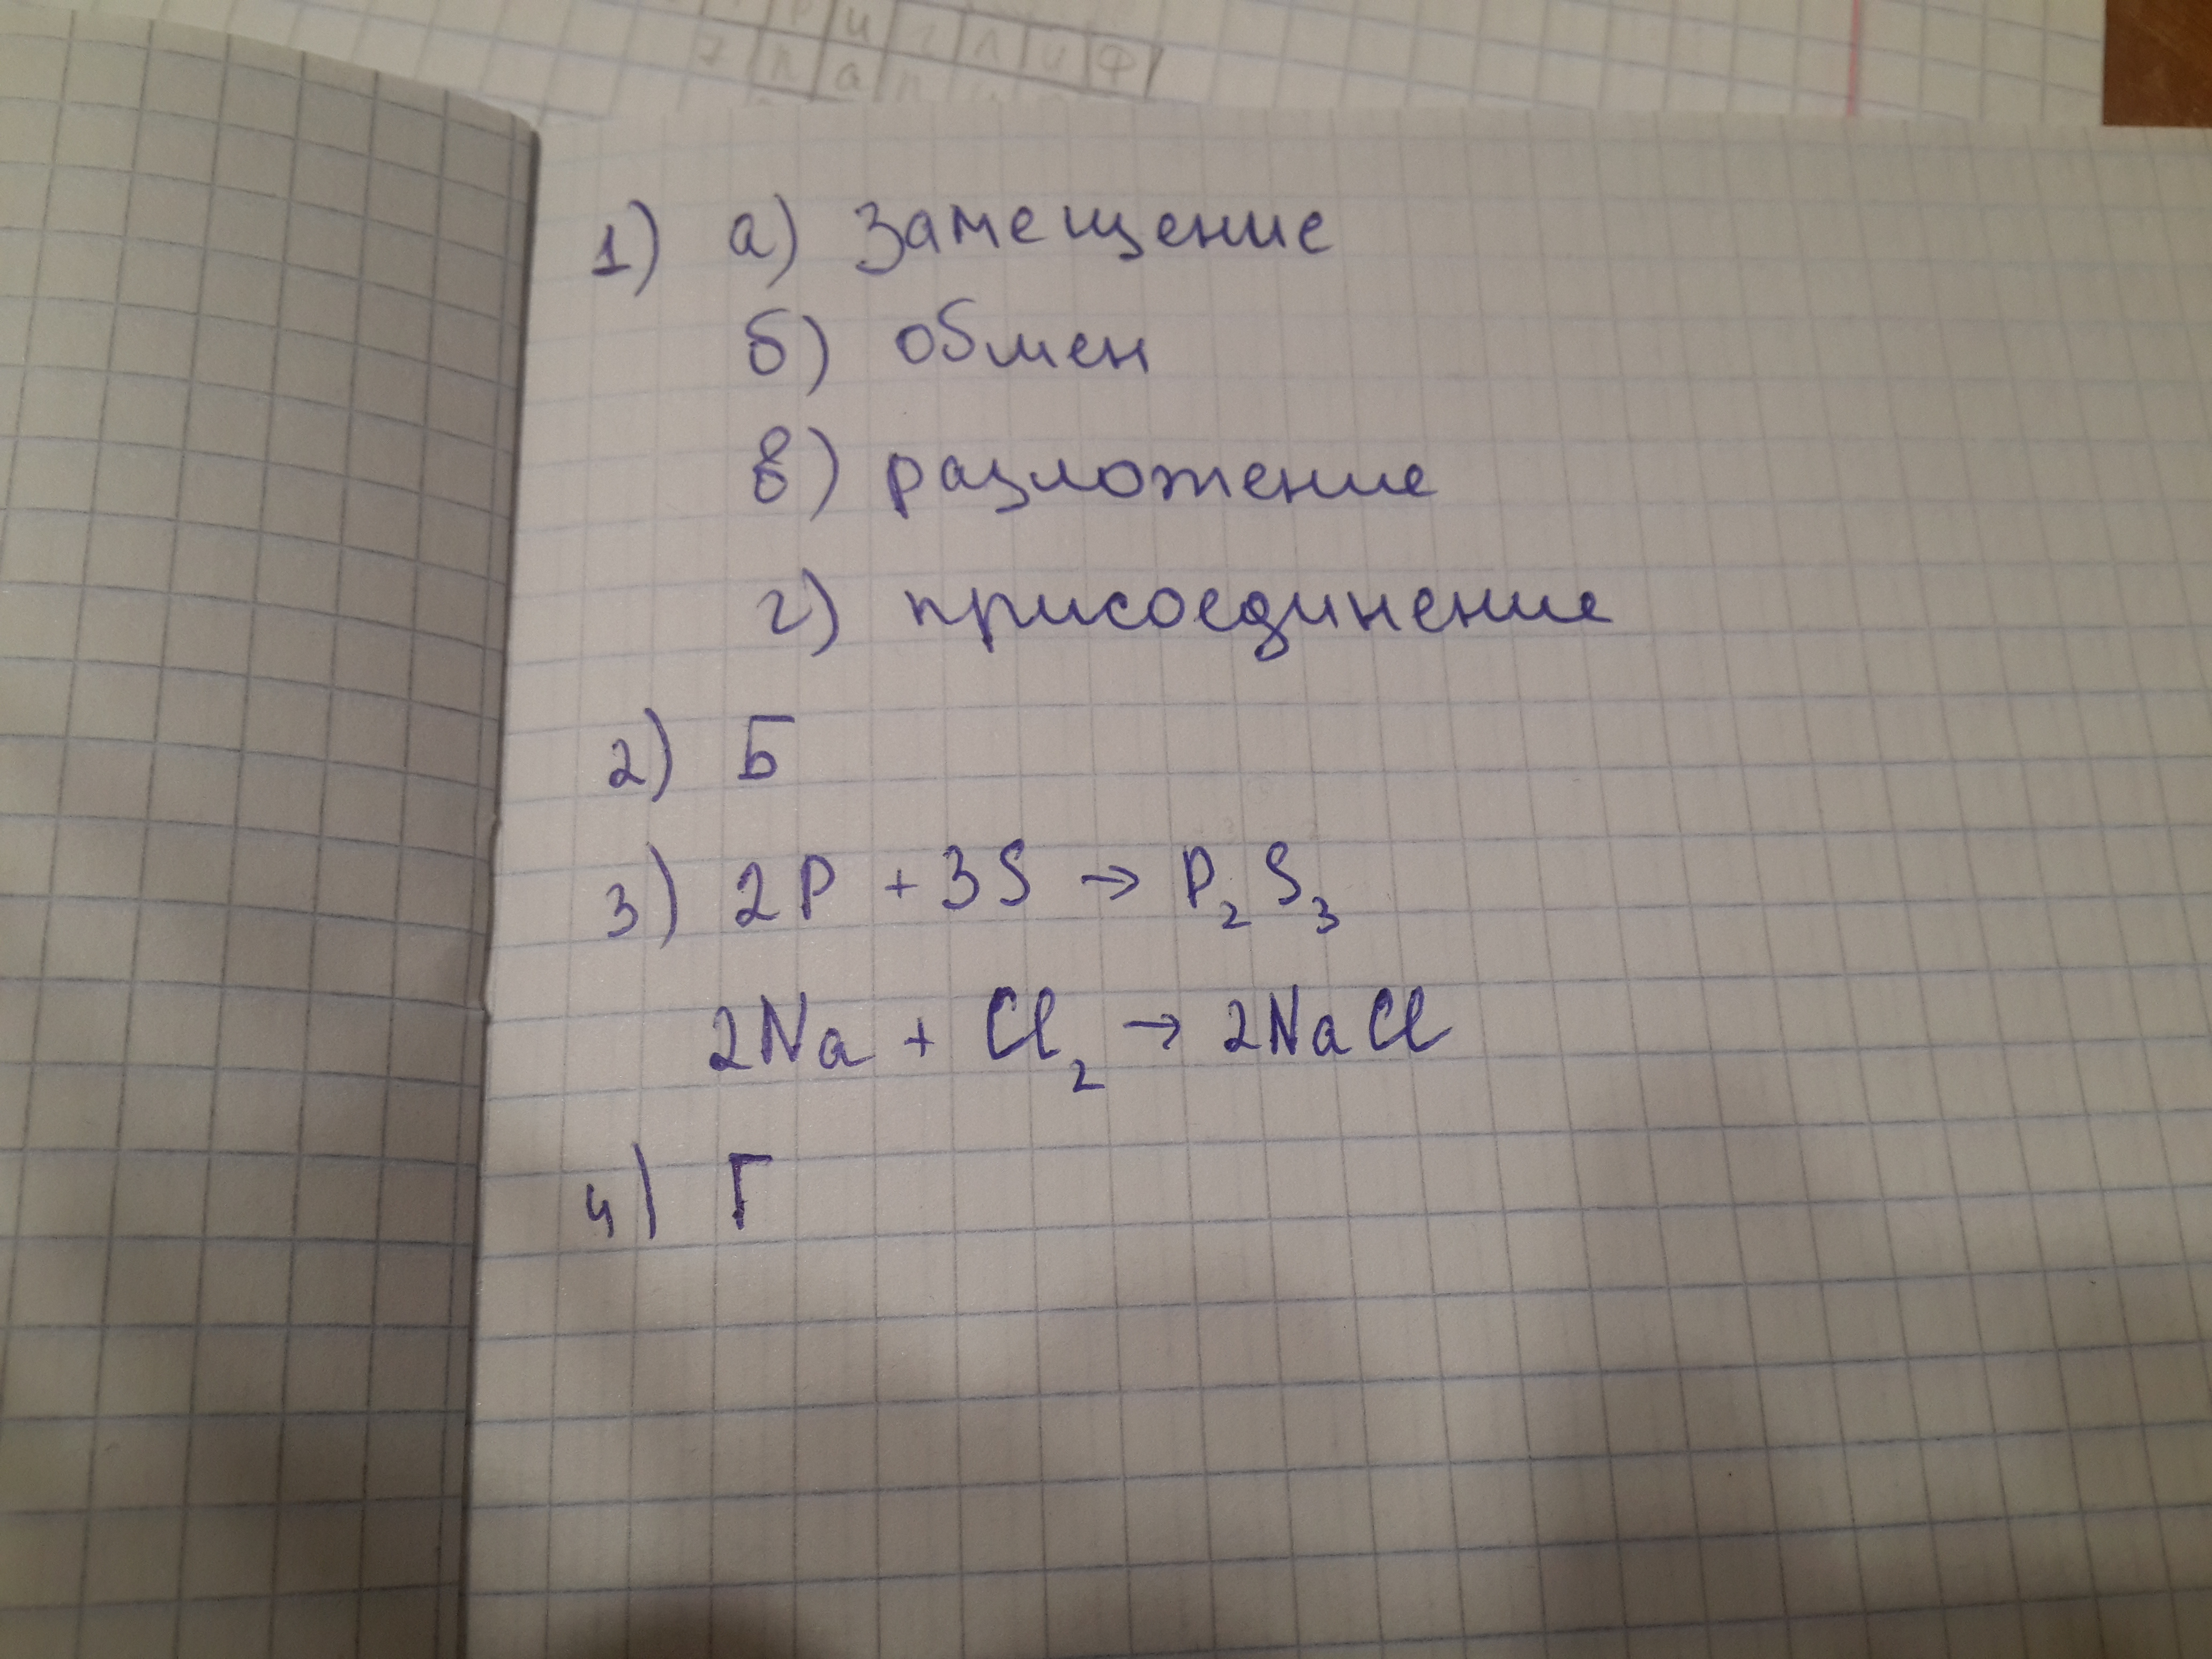 и г л и ф
7 п а п
1) а) замещение
б) обмен
в) разложение
г) присоединение
2) Б
3) 2P + 3S → P₂S₃
2Na + Cl₂ → 2NaCl
4) Г